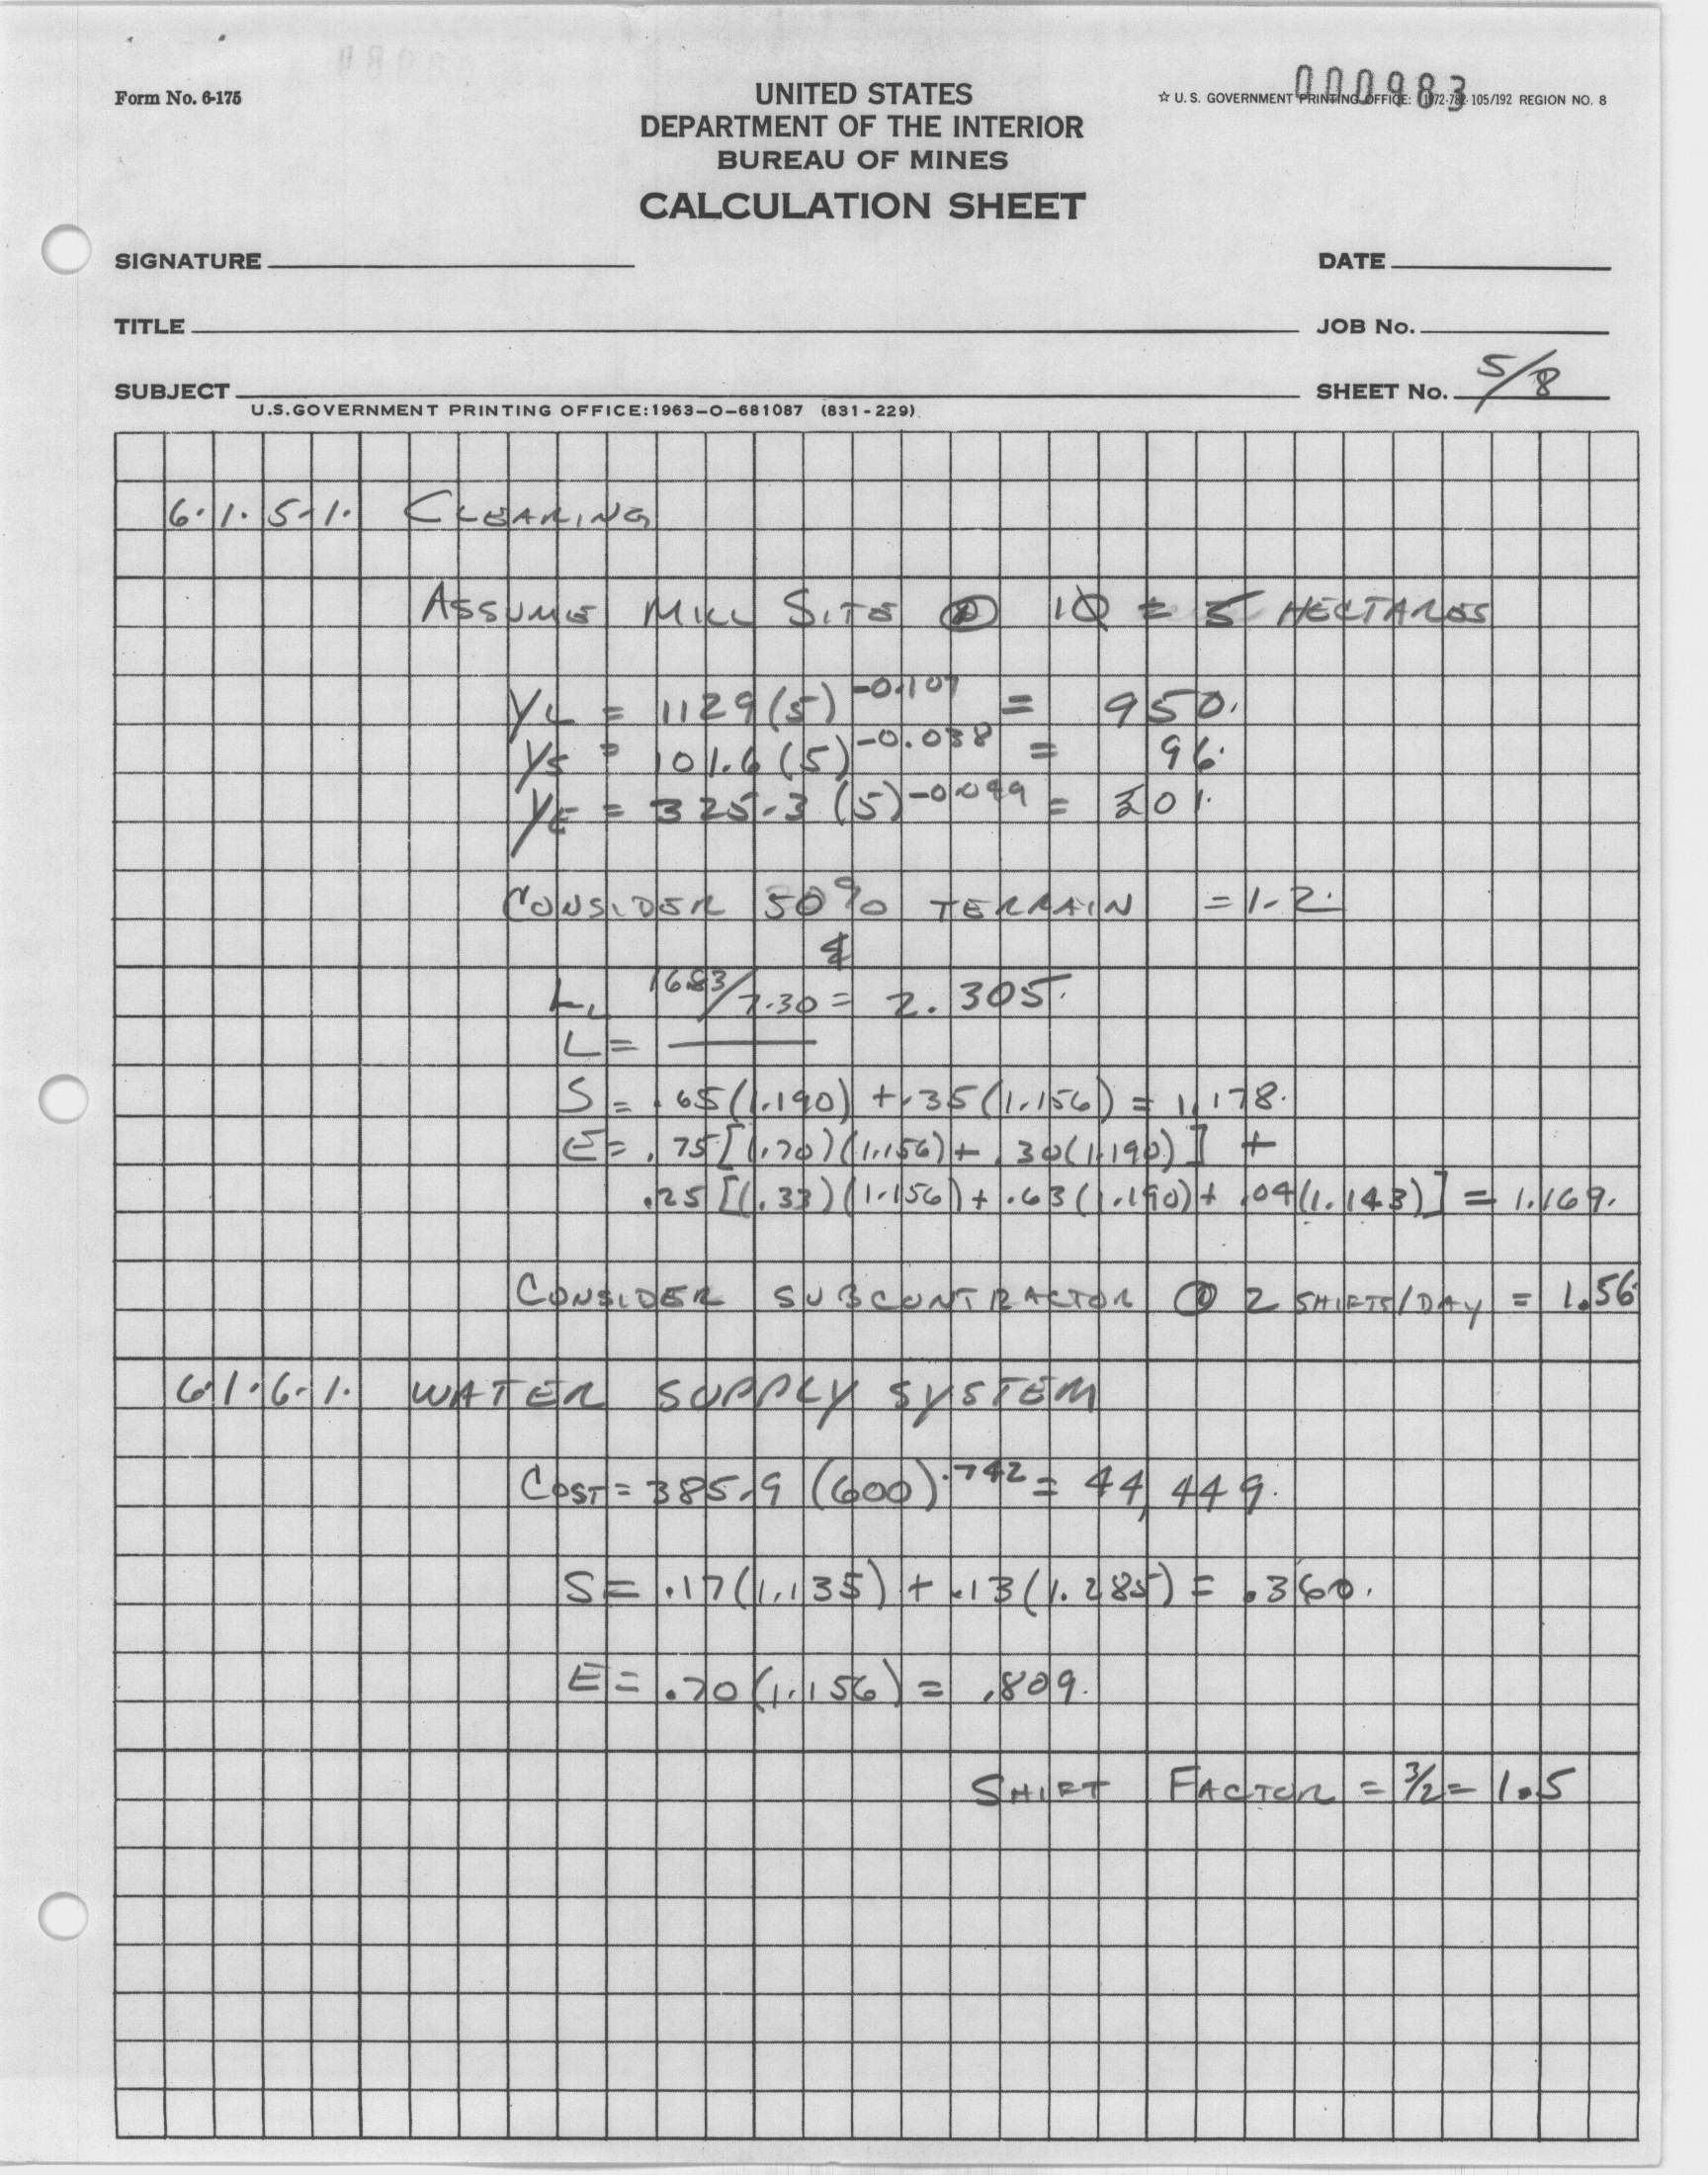 000983
Form No. 6-175
UNITED STATES
DEPARTMENT OF THE INTERIOR
BUREAU OF MINES
CALCULATION SHEET
☆ U. S. GOVERNMENT PRINTING OFFICE: 1972-782-105/192 REGION NO. 8
SIGNATURE
DATE
TITLE
JOB No.
SUBJECT
SHEET No. 5/8
U.S.GOVERNMENT PRINTING OFFICE:1963-O-681087 (831-229)
6.1.5.1. CLEARING
ASSUME MILL SITE @ = 5 HECTARES
YL = 1129(5)^-0.107 = 950.
YS = 101.6(5)^-0.038 = 96.
YE = 325.3(5)^-0.049 = 301.
CONSIDER 50% TERRAIN = 1.2.
&
L, 16.83/7.30 = 2.305.
L =
S = .65(1.190) + .35(1.156) = 1.178.
E = .75[(.70)(1.156) + .30(1.190)] +
.25[(.33)(1.156) + .63(1.190) + .04(1.143)] = 1.169.
CONSIDER SUBCONTRACTOR @ 2 SHIFTS/DAY = 1.56
6.1.6.1. WATER SUPPLY SYSTEM
COST = 385.9 (600)^.742 = 44,449.
S = .17(1.135) + .13(1.285) = .360.
E = .70(1.156) = .809.
SHIFT FACTOR = 3/2 = 1.5